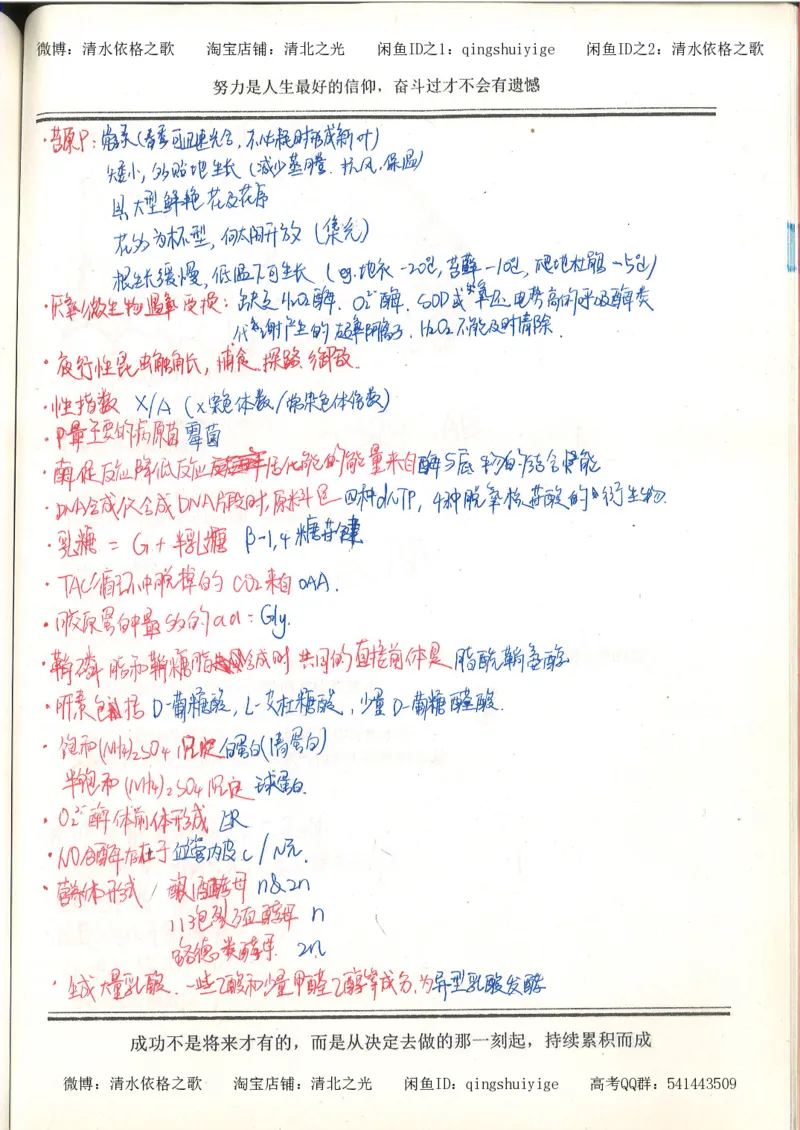 微博：清水依格之歌 淘宝店铺：清北之光 闲鱼ID之1：qingshuiyige 闲鱼ID之2：清水依格之歌
努力是人生最好的信仰，奋斗过才不会有遗憾
·苔原P：常绿(春季可迅速光合，不必耗时形成新叶)
矮小，多贴地生长 (减少蒸腾，抗风，保温)
具大型鲜艳花及花序
花多为杯型，向太阳开放 (集光)
根生长缓慢，低温下可生长 (eg.地衣-20℃，苔藓-10℃，爬地杜鹃-5℃)
·厌氧微生物 缺乏H₂O₂酶，O₂⁻酶，SOD或 电势高的呼吸酶类
代谢产生的 离子，H₂O₂不能及时清除.
·夜行性昆虫触角长，捕食，探路，御敌.
·性指数 X/A (X染色体数/常染色体倍数)
·P最主要的病原菌 霉菌
·酶促反应降低反应活化能的能量来自酶与底物的结合能
·DNA合成仪合成DNA片段时，原料是四种dNTP，4种脱氧核苷酸的衍生物.
·乳糖 = G + 半乳糖 β-1,4糖苷键
·TAC循环中脱掉的CO2来自OAA.
·胶原蛋白中最多的aa：Gly.
·鞘磷脂和鞘糖脂合成时共同的直接前体是 脂酰鞘氨醇
·肝素包括 D-葡糖胺，L-艾杜糖酸，少量D-葡糖醛酸.
·饱和(NH₄)₂SO4沉淀 白蛋白(清蛋白)
半饱和(NH4)₂SO4沉淀 球蛋白.
·体前体形成 ER
·NO合酶存在于血管内皮C/N元.
·营养体形式 / 酿酒酵母 n&2n
八孢裂殖酵母 n
路德类酵母. 2n
·生成大量乳酸，一些乙酸和少量甲醛乙醇等成分，为异型乳酸发酵
成功不是将来才有的，而是从决定去做的那一刻起，持续累积而成
微博：清水依格之歌 淘宝店铺：清北之光 闲鱼ID：qingshuiyige 高考QQ群：541443509